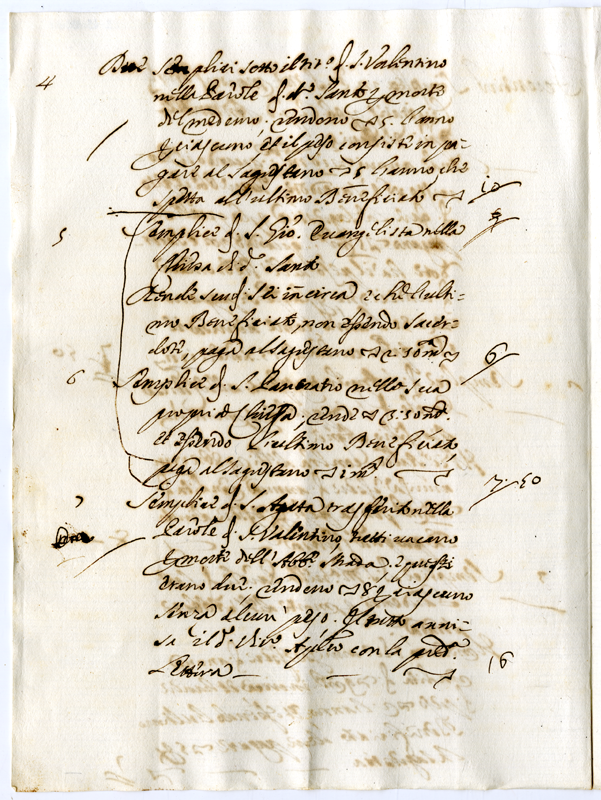 4 Due semplici sotto il tit.o di S. Valentino
nella Par.le di d.o Santo p morte
del medemo, rendono 5 l'anno
p ciascuno, et il peso consiste in pa-
gare al Sagrestano 5 l'anno che
spetta all'ultimo Beneficiato 10
5 Semplice di S. Gio. Evangelista nella
Chiesa di d.o Santo
Rende scudi sei incirca e che l'ulti-
mo Beneficiato, non essendo Sacer-
dote, paga al Sagrestano 6
6 Semplice di S. Pancratio nella sua
propria Chiesa, rende
et essendo l'ultimo Beneficiato
paga al Sagrestano 7-50
7 Semplice di S. Agata trasferito nella
Par.le di S. Valentino, tutti vacano
p morte dell'Abb.e Strada, e questi
erano due, rendono 8 p ciascuno
senza alcun peso. Il tutto avvi-
sa il d. Vic.o Ap.lico con la pred.a
Lettera 16